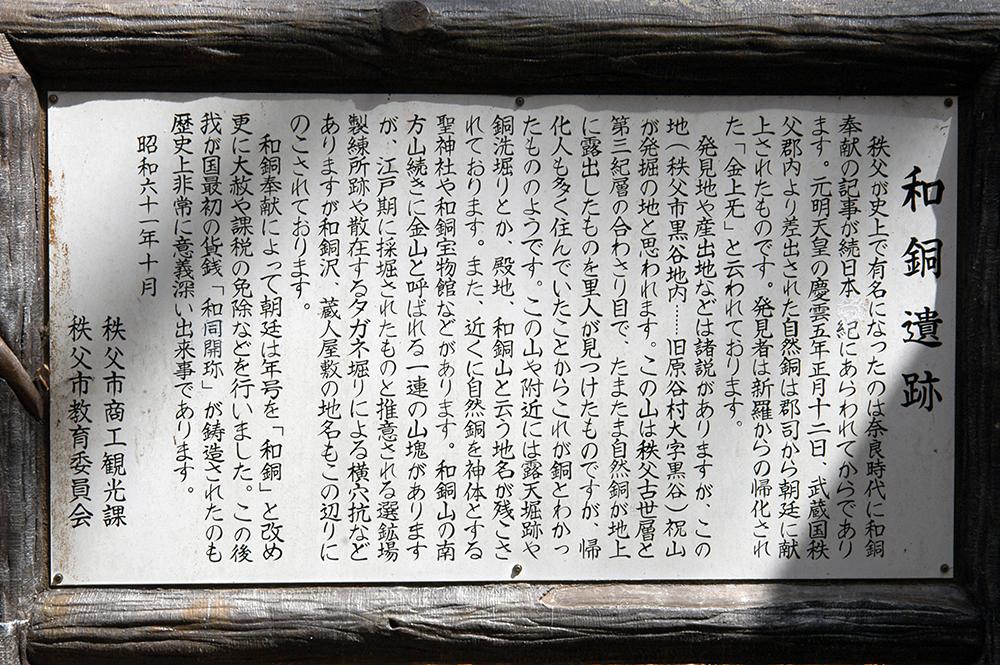 和銅遺跡
秩父が史上で有名になったのは奈良時代に和銅
奉献の記事が続日本紀にあらわれてからであり
ます。元明天皇の慶雲五年正月十二日、武蔵国秩
父郡内より差出された自然銅は郡司から朝廷に献
上されたものです。発見者は新羅からの帰化され
た「金上无」と云われております。
発見地や産出地などは諸説がありますが、この
地(秩父市黒谷地内……旧原谷村大字黒谷)祝山
が発掘の地と思われます。この山は秩父古世層と
第三紀層の合わさり目で、たまたま自然銅が地上
に露出したものを里人が見つけたものですが、帰
化人も多く住んでいたことからこれが銅とわかっ
たもののようです。この山や附近には露天堀跡や
銅洗堀りとか、殿地、和銅山と云う地名が残こさ
れております。また、近くに自然銅を神体とする
聖神社や和銅宝物館などがあります。和銅山の南
方山続きに金山と呼ばれる一連の山塊があります
が、江戸期に採堀されたものと推意される選鉱場
製練所跡や散在するタガネ堀りによる横穴抗など
ありますが和銅沢、蔵人屋敷の地名もこの辺りに
のこされております。
和銅奉献によって朝廷は年号を「和銅」と改め
更に大赦や課税の免除などを行いました。この後
我が国最初の貨銭「和同開珎」が鋳造されたのも
歴史上非常に意義深い出来事であります。
昭和六十一年十月
秩父市商工観光課
秩父市教育委員会